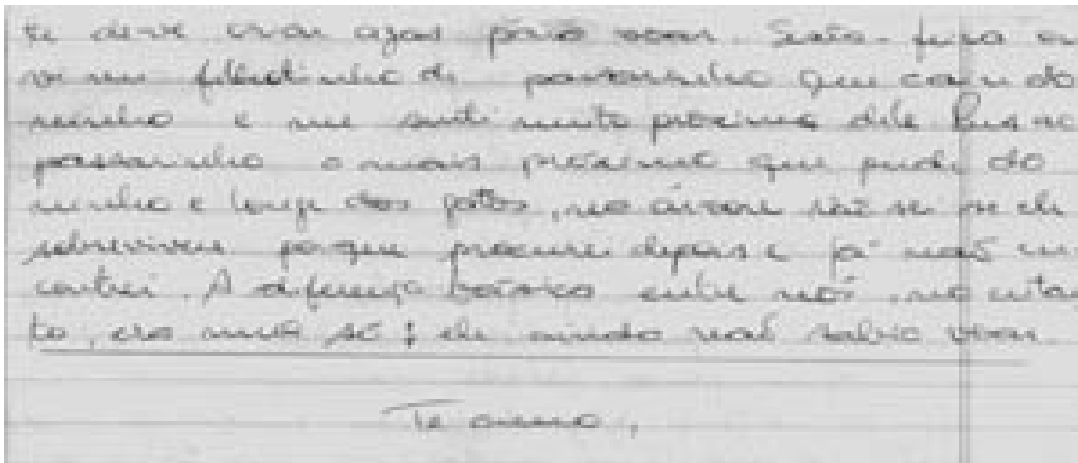 te deve criar azas para voar. Sexta-feira ou
vi um filhotinho de passarinho que caiu do
ninho e me senti muito próxima dele. Pus o
passarinho o mais próximo que pude do
ninho e longe dos gatos, na árvore não sei se ele
sobreviveu porque procurei depois e já não en
contrei. A diferença básica entre nós, no entan
to, era uma só: ele ainda não sabia voar.
Te amo,